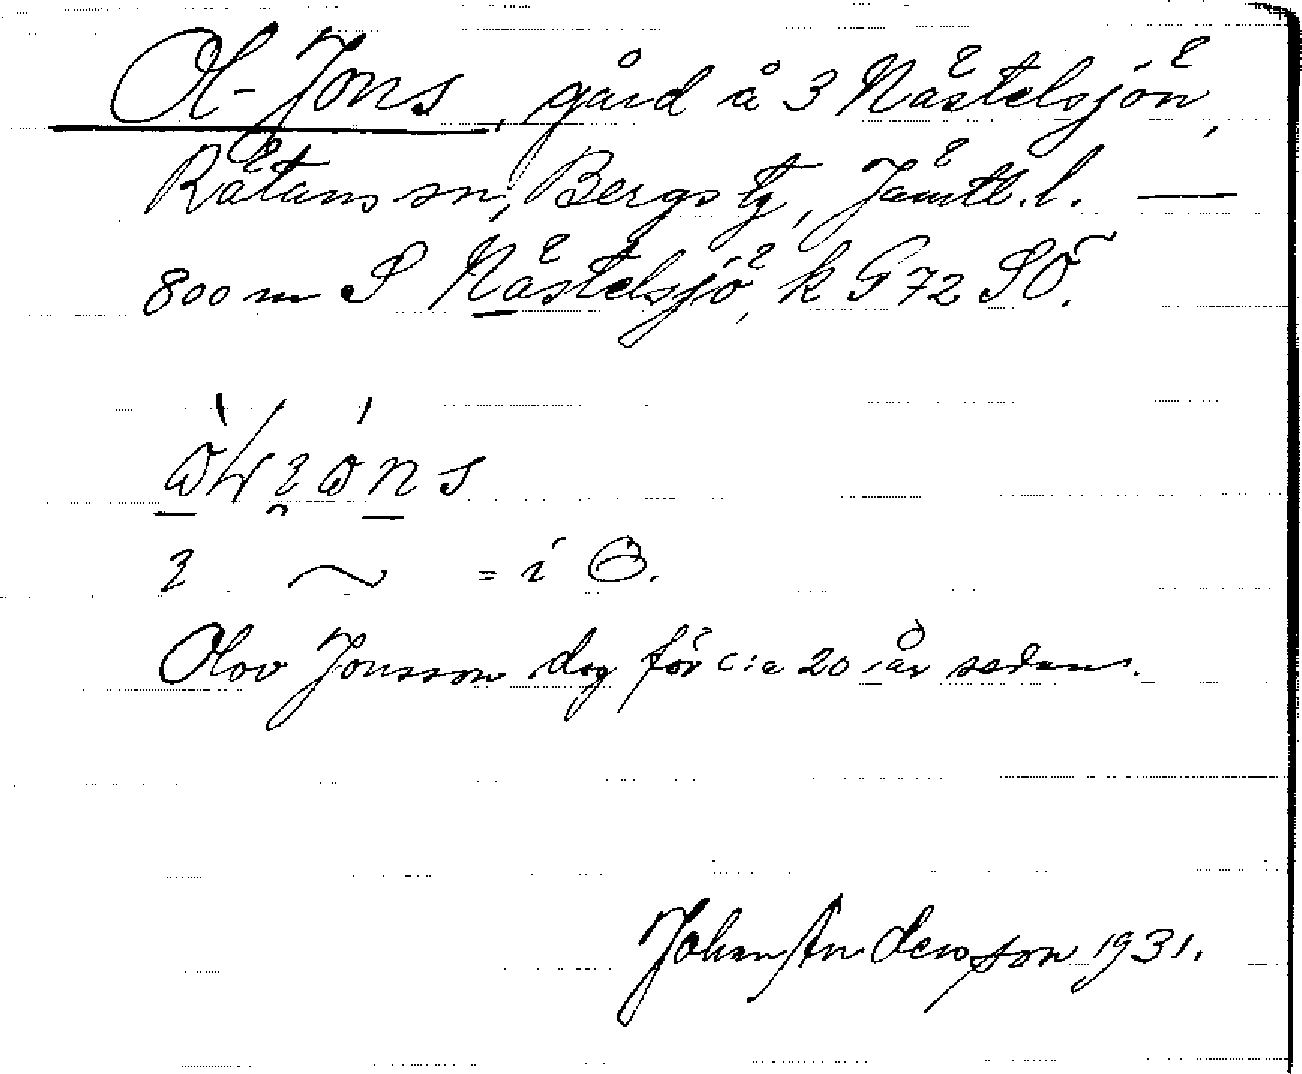 Ol-Jons, gård å 3 Nästelsjön,
Rätans sn, Bergs tg, Jämtl. l. —
800 m S Nästelsjö, k G 72 SÖ.
= i
Olov Jonsson dog för c:a 20 år sedan.
Johan Andersson 1931.